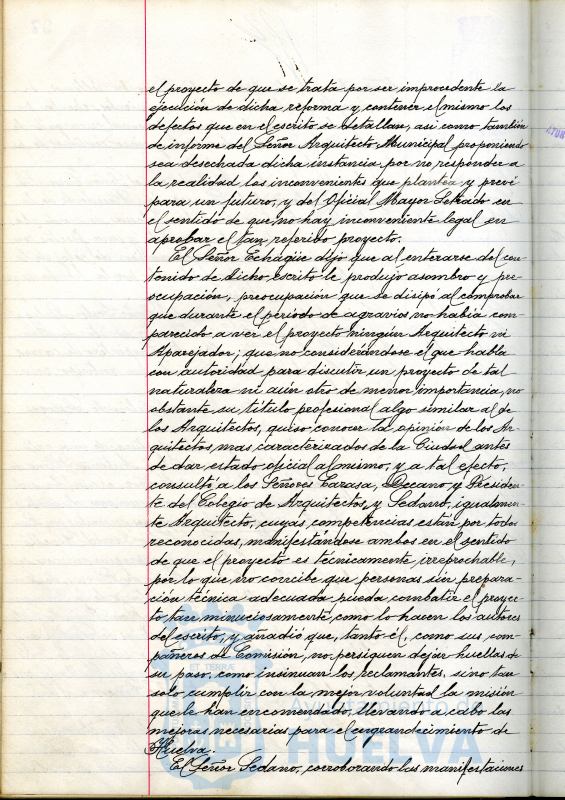 el proyecto de que se trata por ser improcedente la
ejecución de dicha reforma y contener el mismo los
defectos que en el escrito se detallan, asi como también
de informe del Señor Arquitecto Municipal proponiendo
sea desechada dicha instancia por no responder a
la realidad los inconvenientes que plantea y prevé
para un futuro, y del Oficial Mayor Letrado en
el sentido de que no hay inconveniente legal en
aprobar el tan referido proyecto.
El Señor Echagüe dijo que al enterarse del con-
tenido de dicho escrito le produjo asombro y pre-
ocupación, preocupación que se disipó al comprobar
que durante el período de agravios no había com-
parecido a ver el proyecto ningún Arquitecto ni
Aparejador; que no considerándose el que habla
con autoridad para discutir un proyecto de tal
naturaleza ni aún otro de menor importancia, no
obstante su título profesional algo similar al de
los Arquitectos, quiso conocer la opinión de los Ar-
quitectos mas caracterizados de la Ciudad antes
de dar estado oficial al mismo, y a tal efecto,
consultó a los Señores Carasa, Decano y Presiden-
te del Colegio de Arquitectos, y Sedano, igualmen-
te Arquitecto, cuyas competencias están por todos
reconocidas, manifestándose ambos en el sentido
de que el proyecto es técnicamente irreprochable,
por lo que no concibe que personas sin prepara-
ción técnica adecuada pueda combatir el proyec-
to tan minuciosamente como lo hacen los autores
del escrito, y añadió que, tanto él, como sus com-
pañeros de Comisión, no persiguen dejar huellas de
su paso, como insinuan los reclamantes, sino tan
solo cumplir con la mejor voluntad la misión
que le han encomendado, llevando a cabo las
mejoras necesarias para el engrandecimiento de
Huelva.
El Señor Sedano, corroborando las manifestaciones
ET TERRÆ
Ayuntamiento de
HUELVA